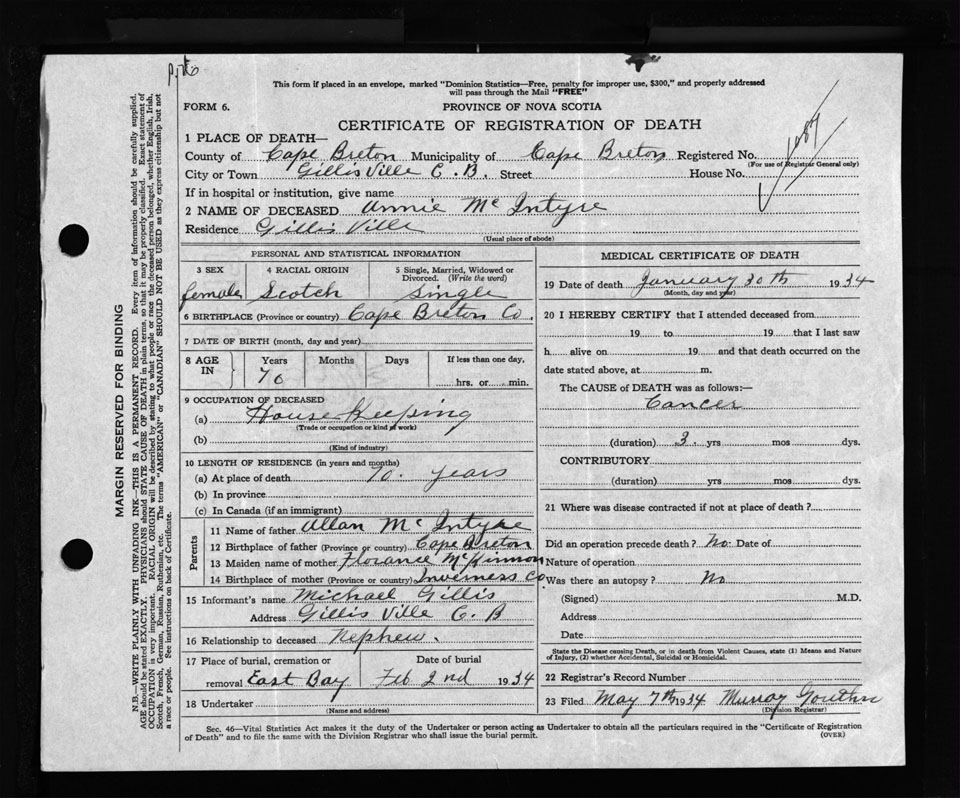 This form if placed in an envelope, marked "Dominion Statistics—Free, penalty for improper use, $300," and properly addressed
will pass through the Mail "FREE"
FORM 6. PROVINCE OF NOVA SCOTIA
CERTIFICATE OF REGISTRATION OF DEATH
1 PLACE OF DEATH—
County of Cape Breton Municipality of Cape Breton Registered No. 1089
(For use of Registrar General only)
City or Town Gillis Ville C.B. Street House No.
If in hospital or institution, give name
2 NAME OF DECEASED Annie McIntyre
Residence Gillis Ville
(Usual place of abode)
PERSONAL AND STATISTICAL INFORMATION
3 SEX 4 RACIAL ORIGIN 5 Single, Married, Widowed or
Divorced. (Write the word)
female Scotch Single
6 BIRTHPLACE (Province or country) Cape Breton Co.
7 DATE OF BIRTH (month, day and year)
8 AGE IN Years Months Days If less than one day,
70 hrs. or min.
9 OCCUPATION OF DECEASED
(a) House Keeping
(Trade or occupation or kind of work)
(b)
(Kind of industry)
10 LENGTH OF RESIDENCE (in years and months)
(a) At place of death 70. years
(b) In province
(c) In Canada (if an immigrant)
Parents
11 Name of father Allan McIntyre
12 Birthplace of father (Province or country) Cape Breton
13 Maiden name of mother Florance McKinnon
14 Birthplace of mother (Province or country) Inverness Co.
15 Informant's name Michael Gillis
Address Gillis Ville C.B
16 Relationship to deceased Nephew.
17 Place of burial, cremation or Date of burial
removal East Bay Feb 2nd 1934
18 Undertaker
(Name and address)
MEDICAL CERTIFICATE OF DEATH
19 Date of death January 30th 1934
(Month, day and year)
20 I HEREBY CERTIFY that I attended deceased from
19 to 19 that I last saw
h alive on 19 and that death occurred on the
date stated above, at m.
The CAUSE of DEATH was as follows:—
Cancer
(duration) 3. yrs mos dys.
CONTRIBUTORY
(duration) yrs mos dys.
21 Where was disease contracted if not at place of death?
Did an operation precede death? No. Date of
Nature of operation
Was there an autopsy? No
(Signed) M.D.
Address
Date
State the Disease causing Death, or in death from Violent Causes, state (1) Means and Nature
of Injury, (2) whether Accidental, Suicidal or Homicidal.
22 Registrar's Record Number
23 Filed May 7th 1934 Murray
(Division Registrar)
Sec. 46—Vital Statistics Act makes it the duty of the Undertaker or person acting as Undertaker to obtain all the particulars required in the "Certificate of Registration
of Death" and to file the same with the Division Registrar who shall issue the burial permit. (OVER)
MARGIN RESERVED FOR BINDING
N.B.—WRITE PLAINLY WITH UNFADING INK—THIS IS A PERMANENT RECORD. Every item of information should be carefully supplied.
AGE should be stated EXACTLY. PHYSICIANS should STATE CAUSE OF DEATH in plain terms, so that it may be properly classified. Exact statement of
OCCUPATION is very important. RACIAL ORIGIN will be described by stating to what people or race the deceased person belonged, whether English, Irish,
Scotch, French, German, Russian, Ruthenian, etc. The terms "AMERICAN" or "CANADIAN" SHOULD NOT BE USED as they express citizenship but not
a race or people. See instructions on back of Certificate.